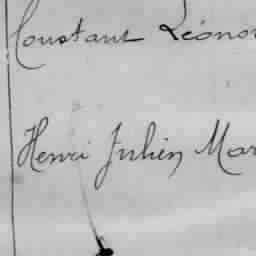 Constant Léono
Henri Julien Mar